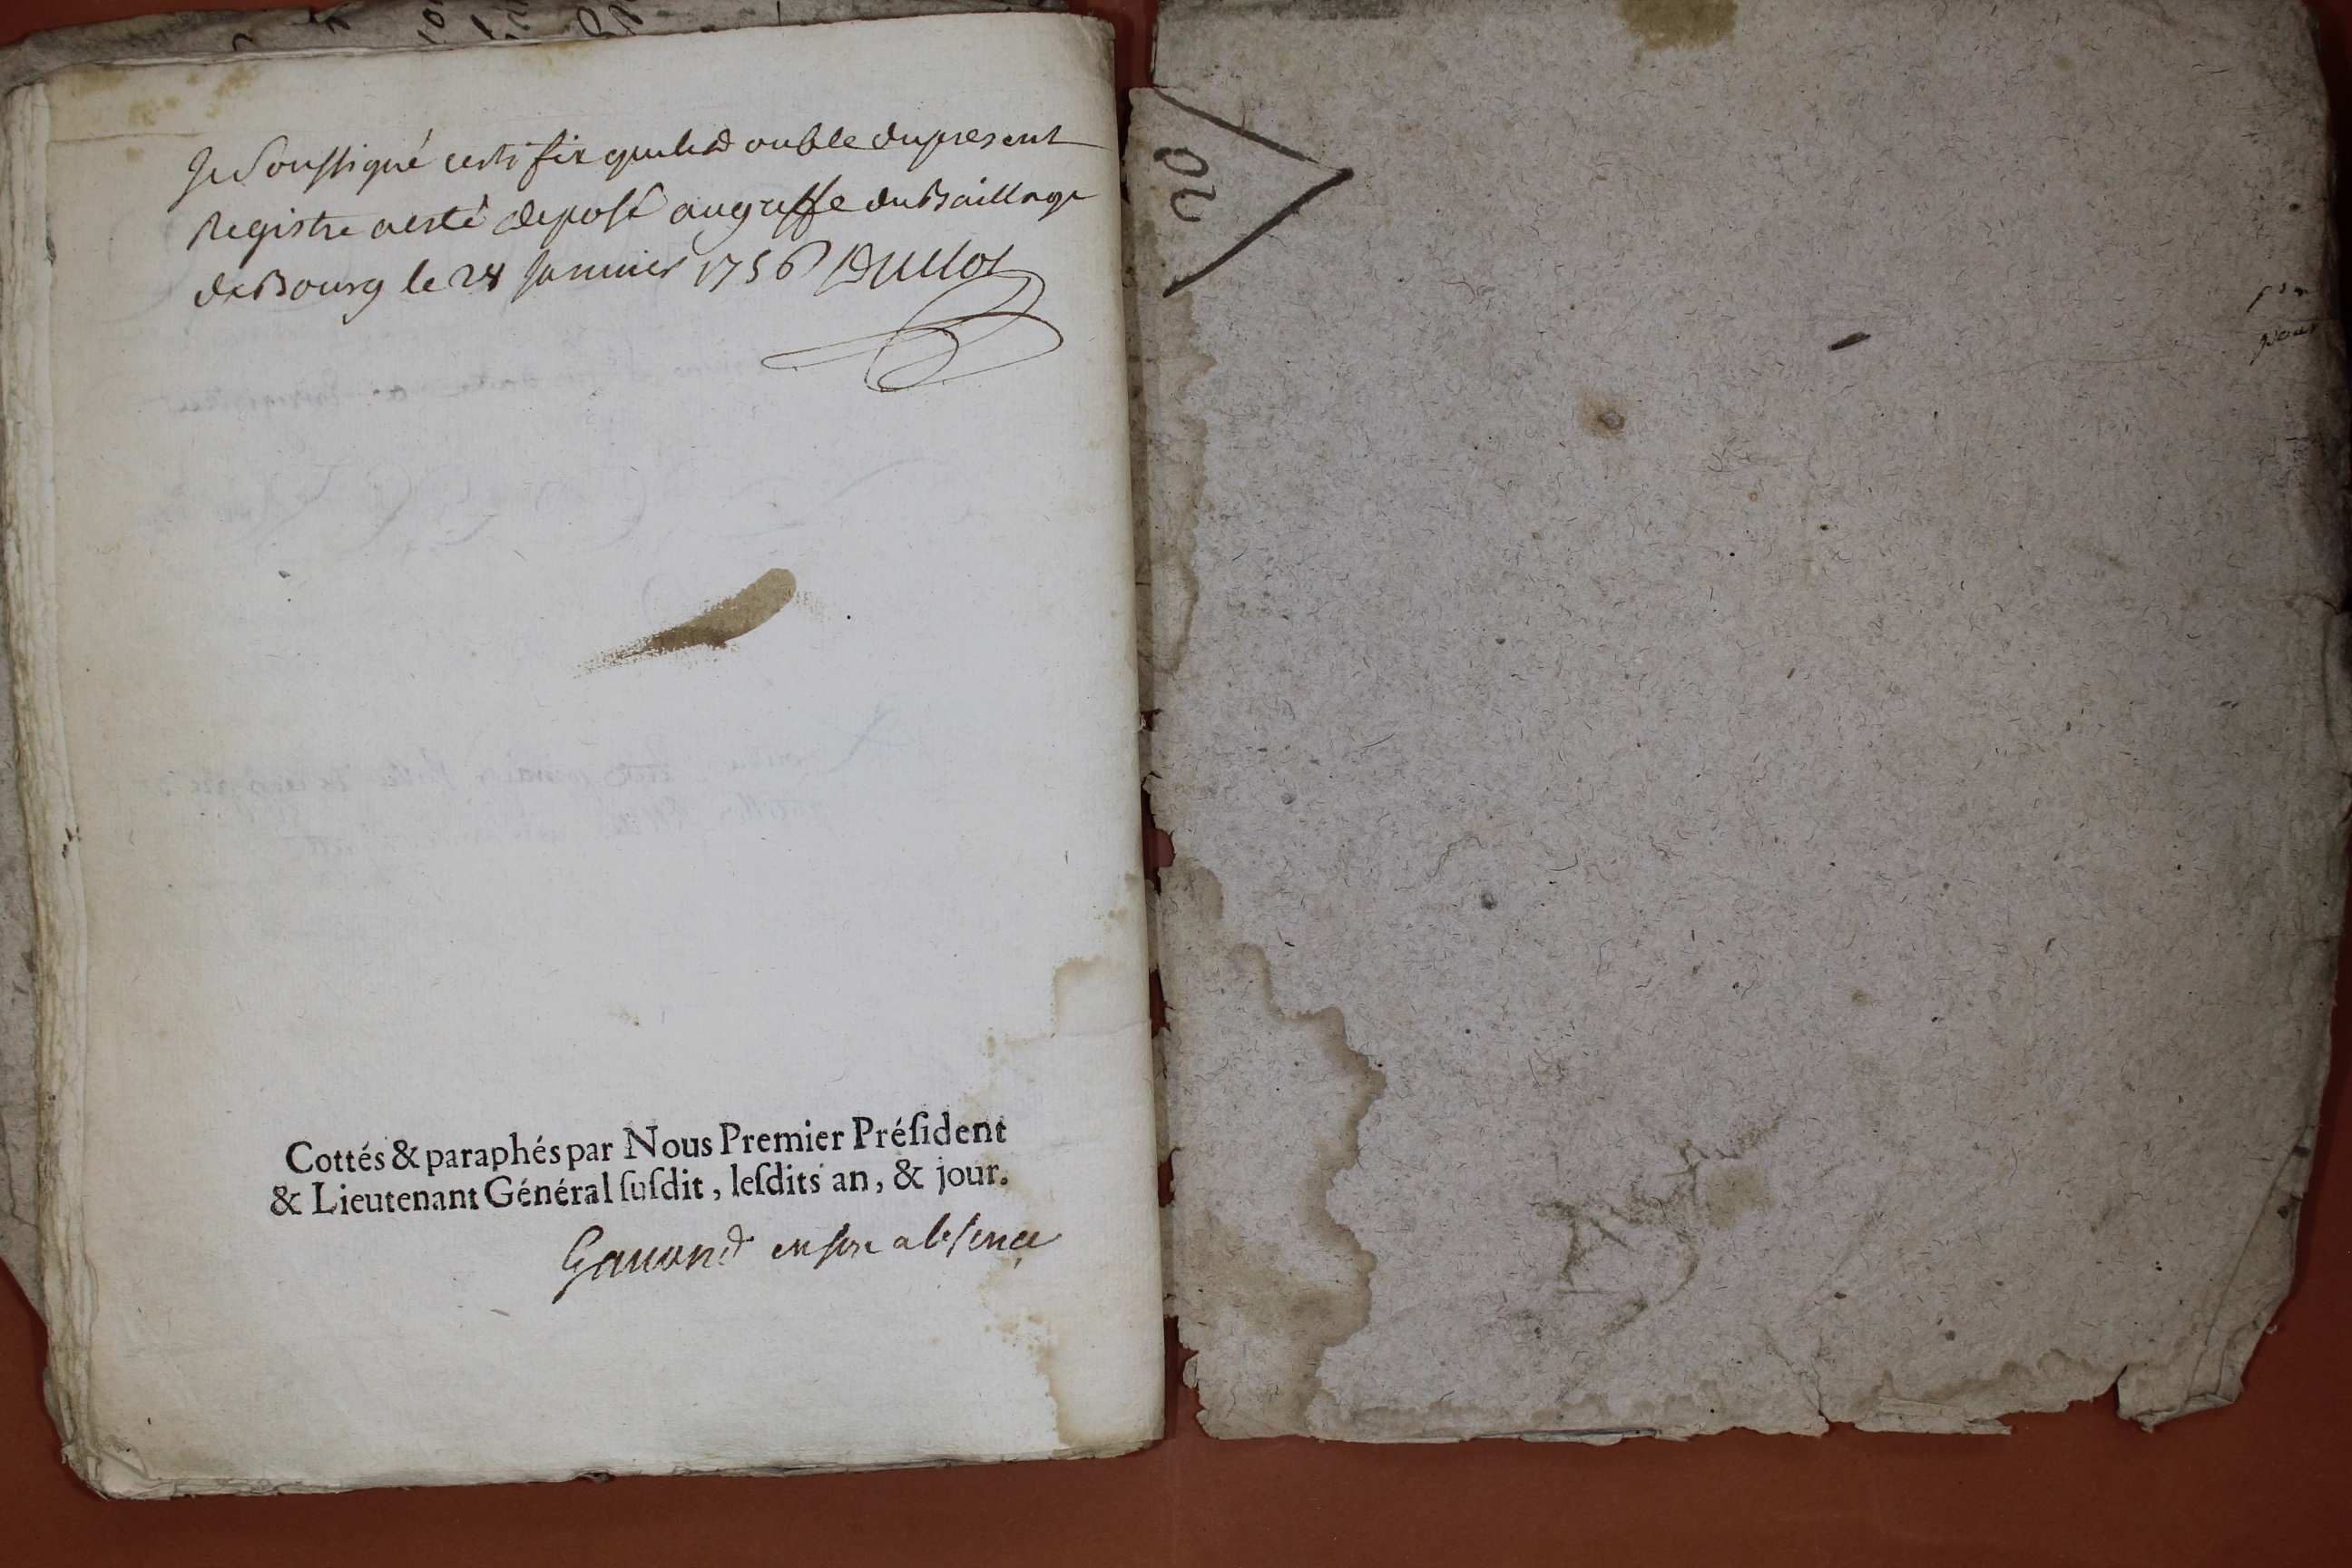 Je Soussigné certifie que le double du present
Registre a esté deposé au greffe du Baillage
de Bourg le 24 Janvier 1756 Dullot
Cottés & paraphés par Nous Premier Préſident
& Lieutenant Général ſuſdit, leſdits an, & jour.
Gauond en son absence
20
pour